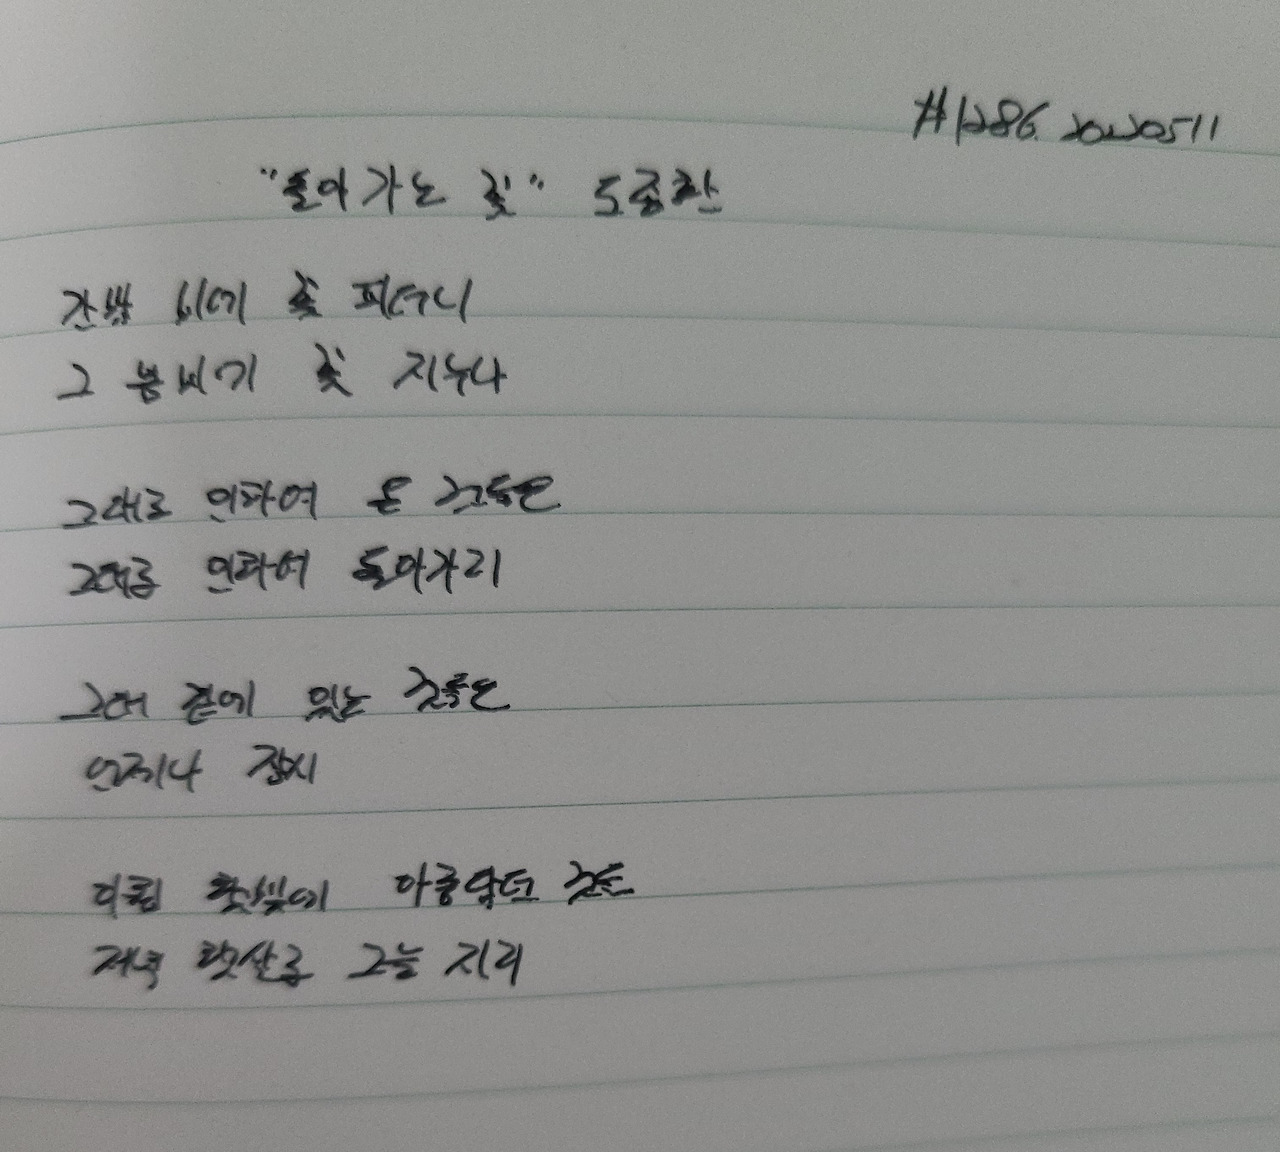 #1286. 20220511
"돌아가는 꽃" 도종환
간밤 비에 꽃 피더니
그 봄비에 꽃 지누나
그대로 인하여 온 것들은
그대로 인하여 돌아가리
그대 곁에 있는 것들은
언제나 잠시
아침 햇빛에 아름답던 것들
저녁 햇살로 그늘 지리